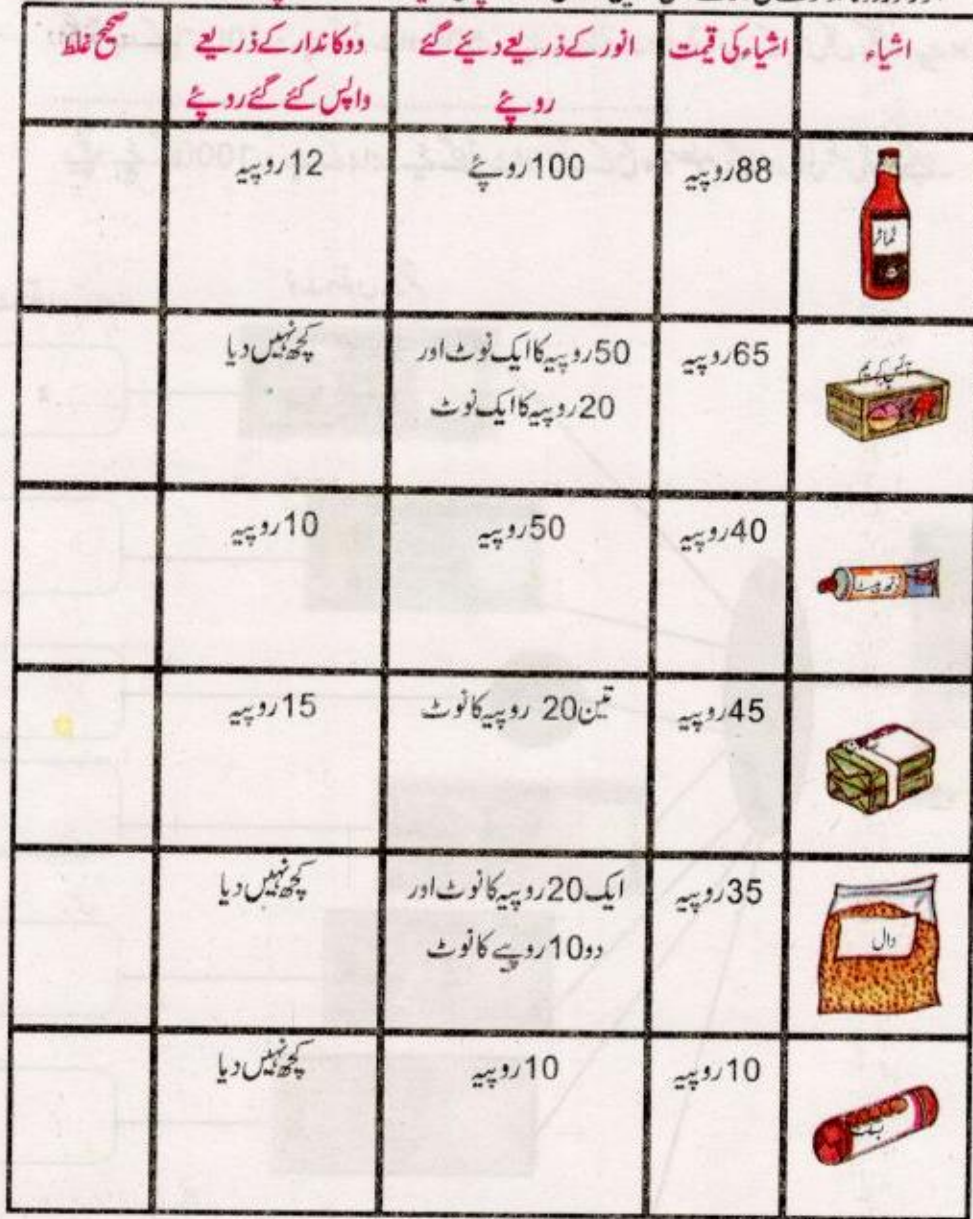 اشیاء
اشیاء کی قیمت
انور کے ذریعے دیئے گئے
روپئے
دوکاندار کے ذریعے
واپس کئے گئے روپئے
صحیح غلط
ٹماٹر
88 روپیہ
100 روپئے
12 روپیہ
آئس کریم
65 روپیہ
50 روپیہ کا ایک نوٹ اور
20 روپیہ کا ایک نوٹ
کچھ نہیں دیا
ٹوتھ پیسٹ
40 روپیہ
50 روپیہ
10 روپیہ
45 روپیہ
تین 20 روپیہ کا نوٹ
15 روپیہ
دال
35 روپیہ
ایک 20 روپیہ کا نوٹ اور
دو 10 روپے کا نوٹ
کچھ نہیں دیا
بسکٹ
10 روپیہ
10 روپیہ
کچھ نہیں دیا